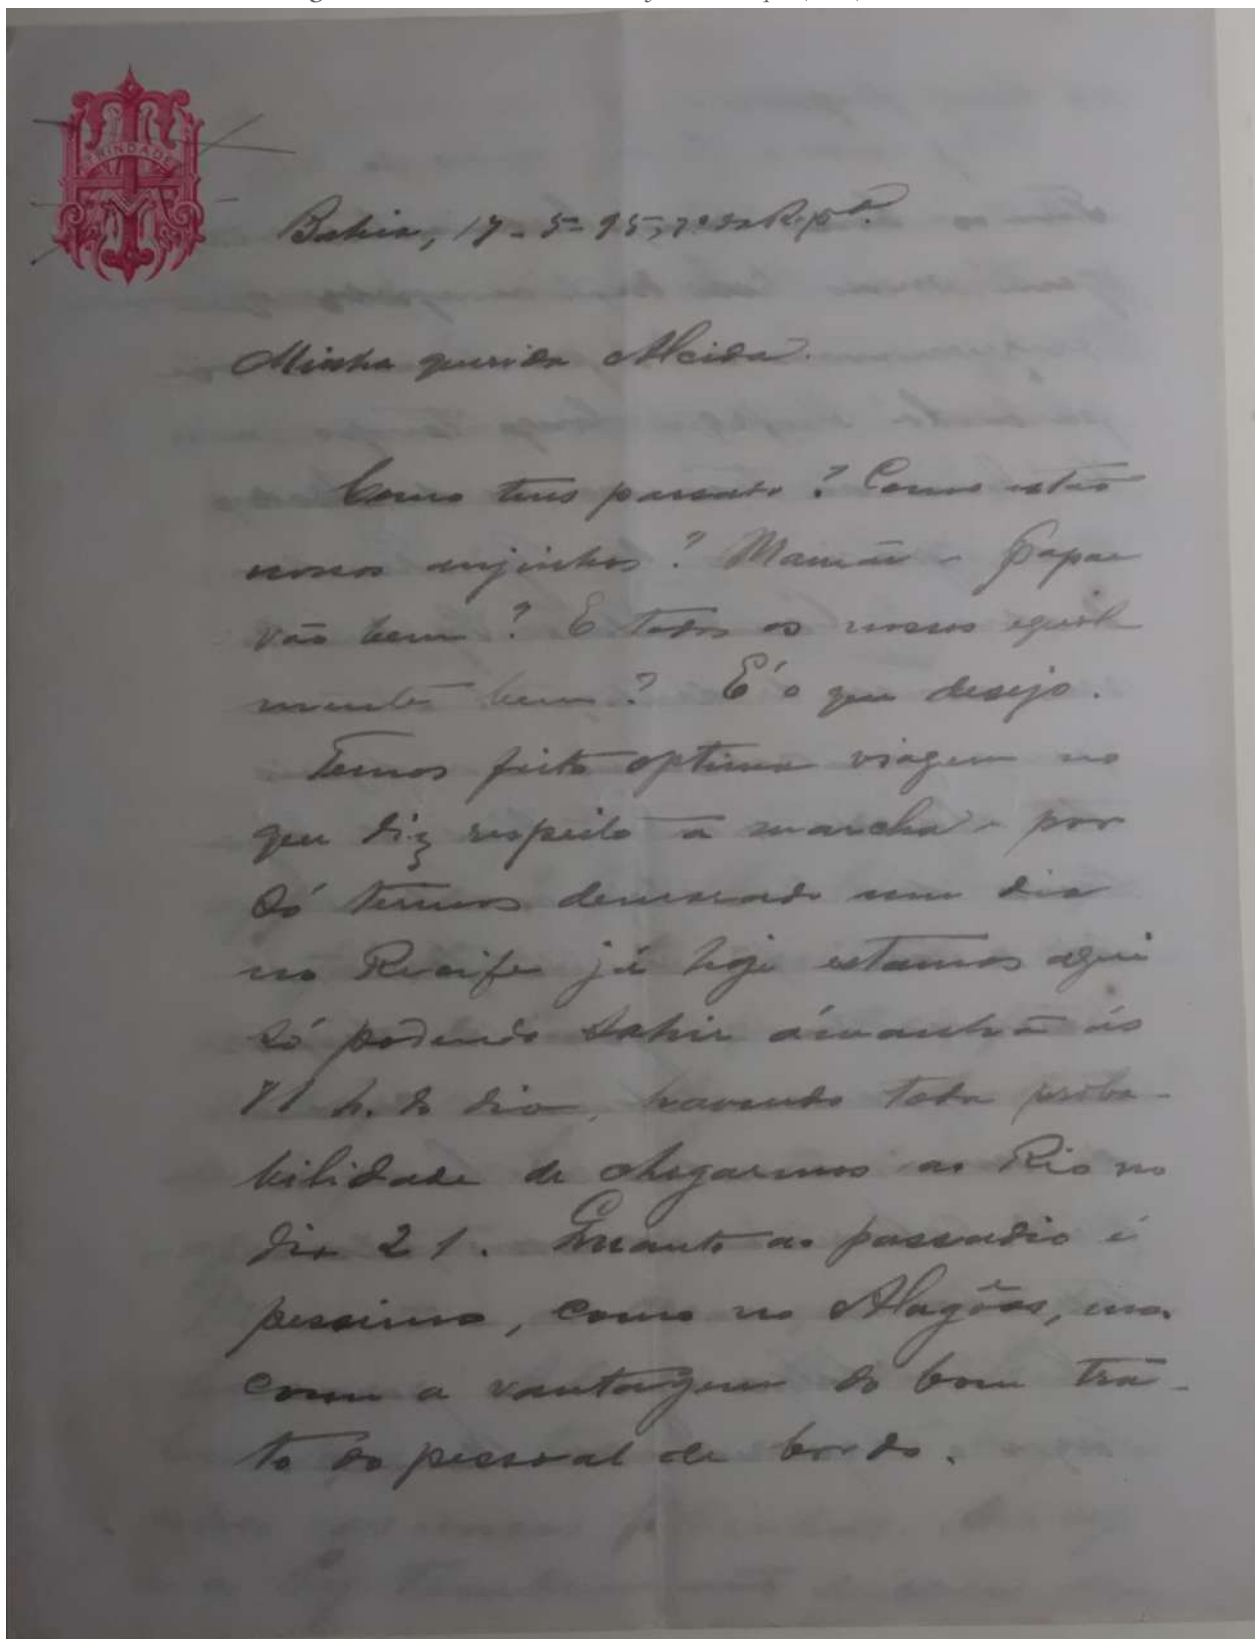 TRINDADE
Bahia, 17-5-95, 7º da Rep.ª
Minha querida Alcida.
Como tens passado? Como estão
nossos anjinhos? Mamãe e Papae
vão bem? E todos os nossos egual
mente bem? É o que desejo.
Temos feito optima viagem no
que diz respeito a marcha e por
só termos demorado um dia
no Recife já hoje estamos aqui
só podendo sahir ámanhã ás
11 h. do dia, havendo toda proba-
bilidade de chegarmos ao Rio no
dia 21. Quanto ao passadio é
pessimo, como no Alagôas, mas
com a vantagem do bom tra-
to do pessoal de bordo.